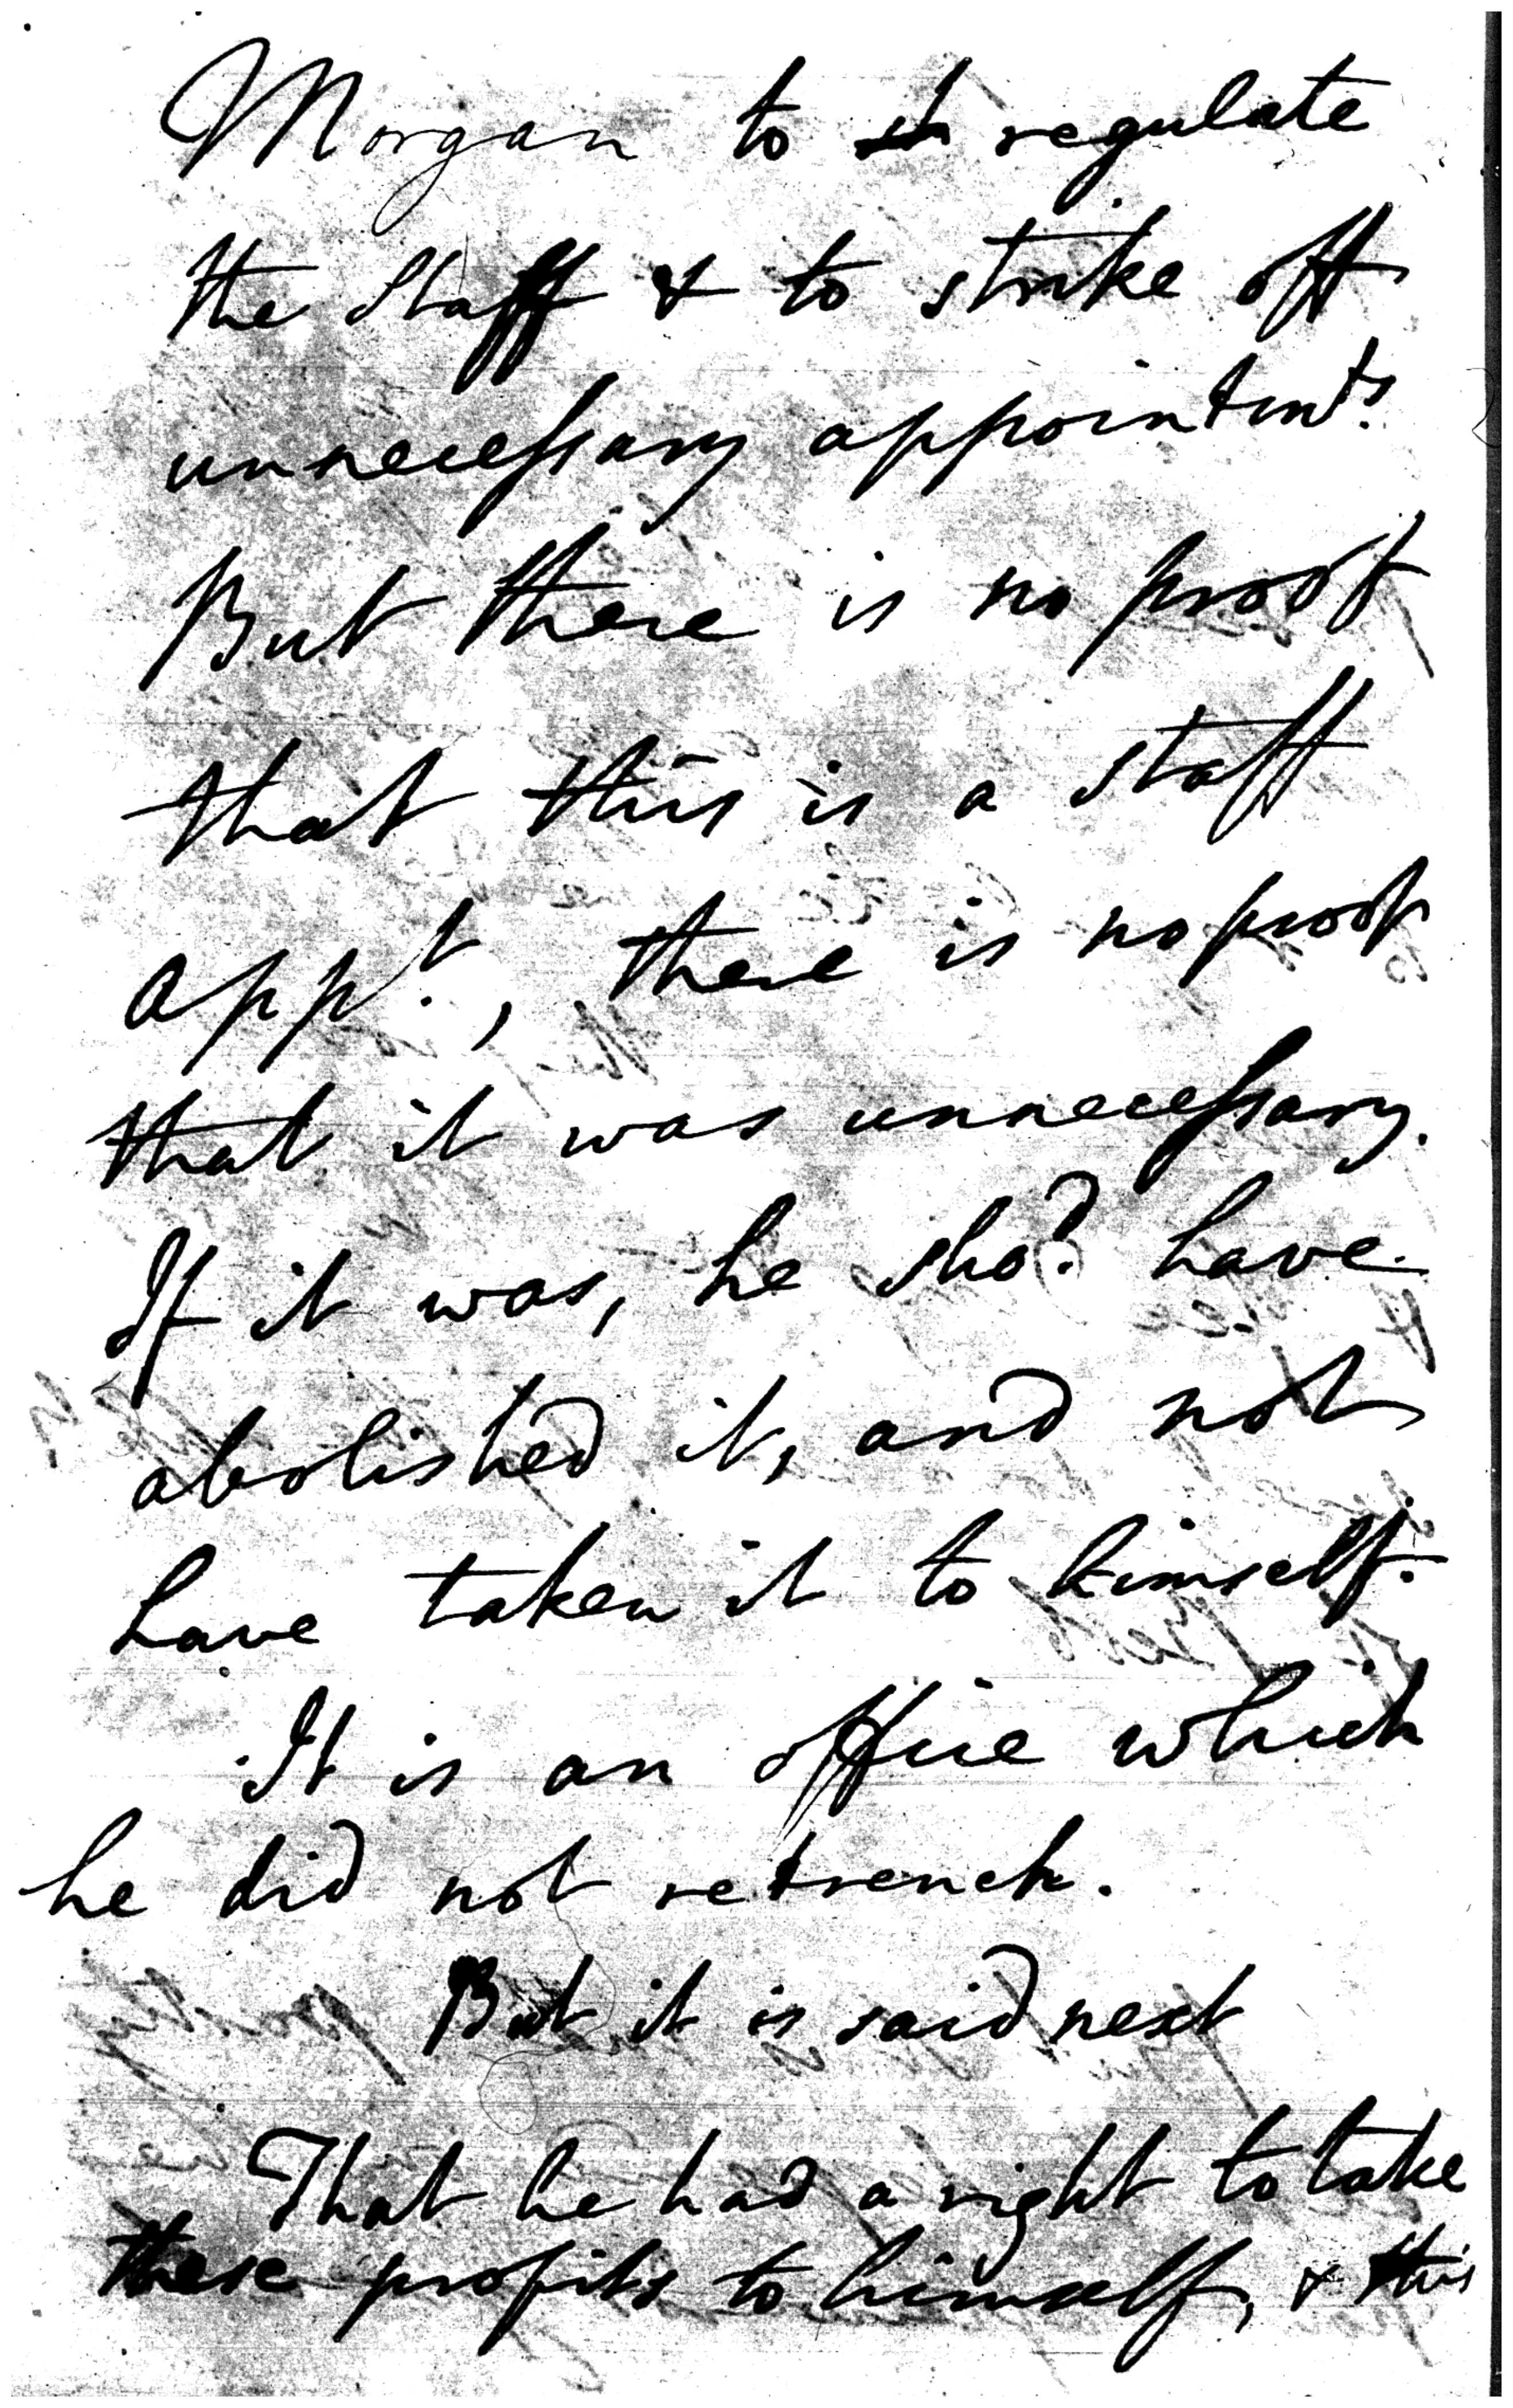 Morgan to regulate
the Staff & to strike off
unnecessary appointmts.
But there is no proof
that this is a staff
appt., there is no proof
that it was unnecessary.
If it was, he shod. have
abolished it, and not
have taken it to himself.
It is an office which
he did not retrench.
But it is said next
That he had a right to take
these profits to himself, & this